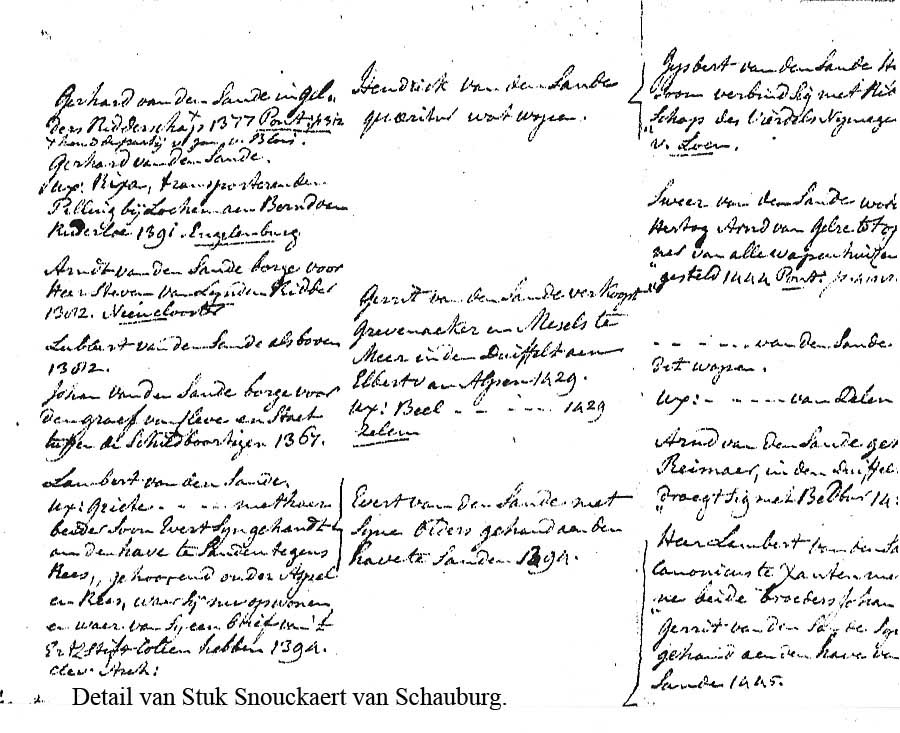 Gerhard van den Sande in Gel-
ders Ridderschap 1377 Pont
v. Blois.
Gerhard van den Sande.
ux: Rixa, transporteren den
bij Lochem aen Berndven
1391. Engelenburg
Arndt van den Sande borge voor
Heer Steven van Ridder
1382.
Lubbert van den Sande als boven
1382.
Johan van den Sande borge voor
den graef van Cleve en Staet
de Schildboortigen 1367.
Lambert van den Sande.
ux: Griete - - - - met haer
beider Soon Evert syn gehandt
aen den have te Sanden tegens
Rees, gehoorend onder Aspel
en Rees, waer sy nu op wonen
en waer van sy een brief van 't
Ertzstift Colien hebben 1394.
clev. Arch:
Hendrick van den Sande
quaeritur wat wapen.
Gerrit van den Sande verkoopt
Grevenacker en Mesels te
Meer in den Duiffelt aen
Elbert van Alpen 1429.
ux: Beel - - - - - 1429
Zelem
Evert van den Sande met
syne olders gehand aen den
have te Sanden 1394.
Gysbert van den Sande
soon verbind sig met
schap des
v. Loen.
Sweer van den Sande
Hertog Arnd van Gelre tot
van alle
gesteld 1444 Pont.
- - - - - - van den Sande.
dit wapen.
ux: - - - - - van Delen
Arnd van den Sande
Reimaer, in den
draegt sig met
Heer Lambert van den
canonicus te Xanten
beide broeders Johan
Gerrit van den Sande
gehand aen den have
Sande 1445.
Detail van Stuk Snouckaert van Schauburg.